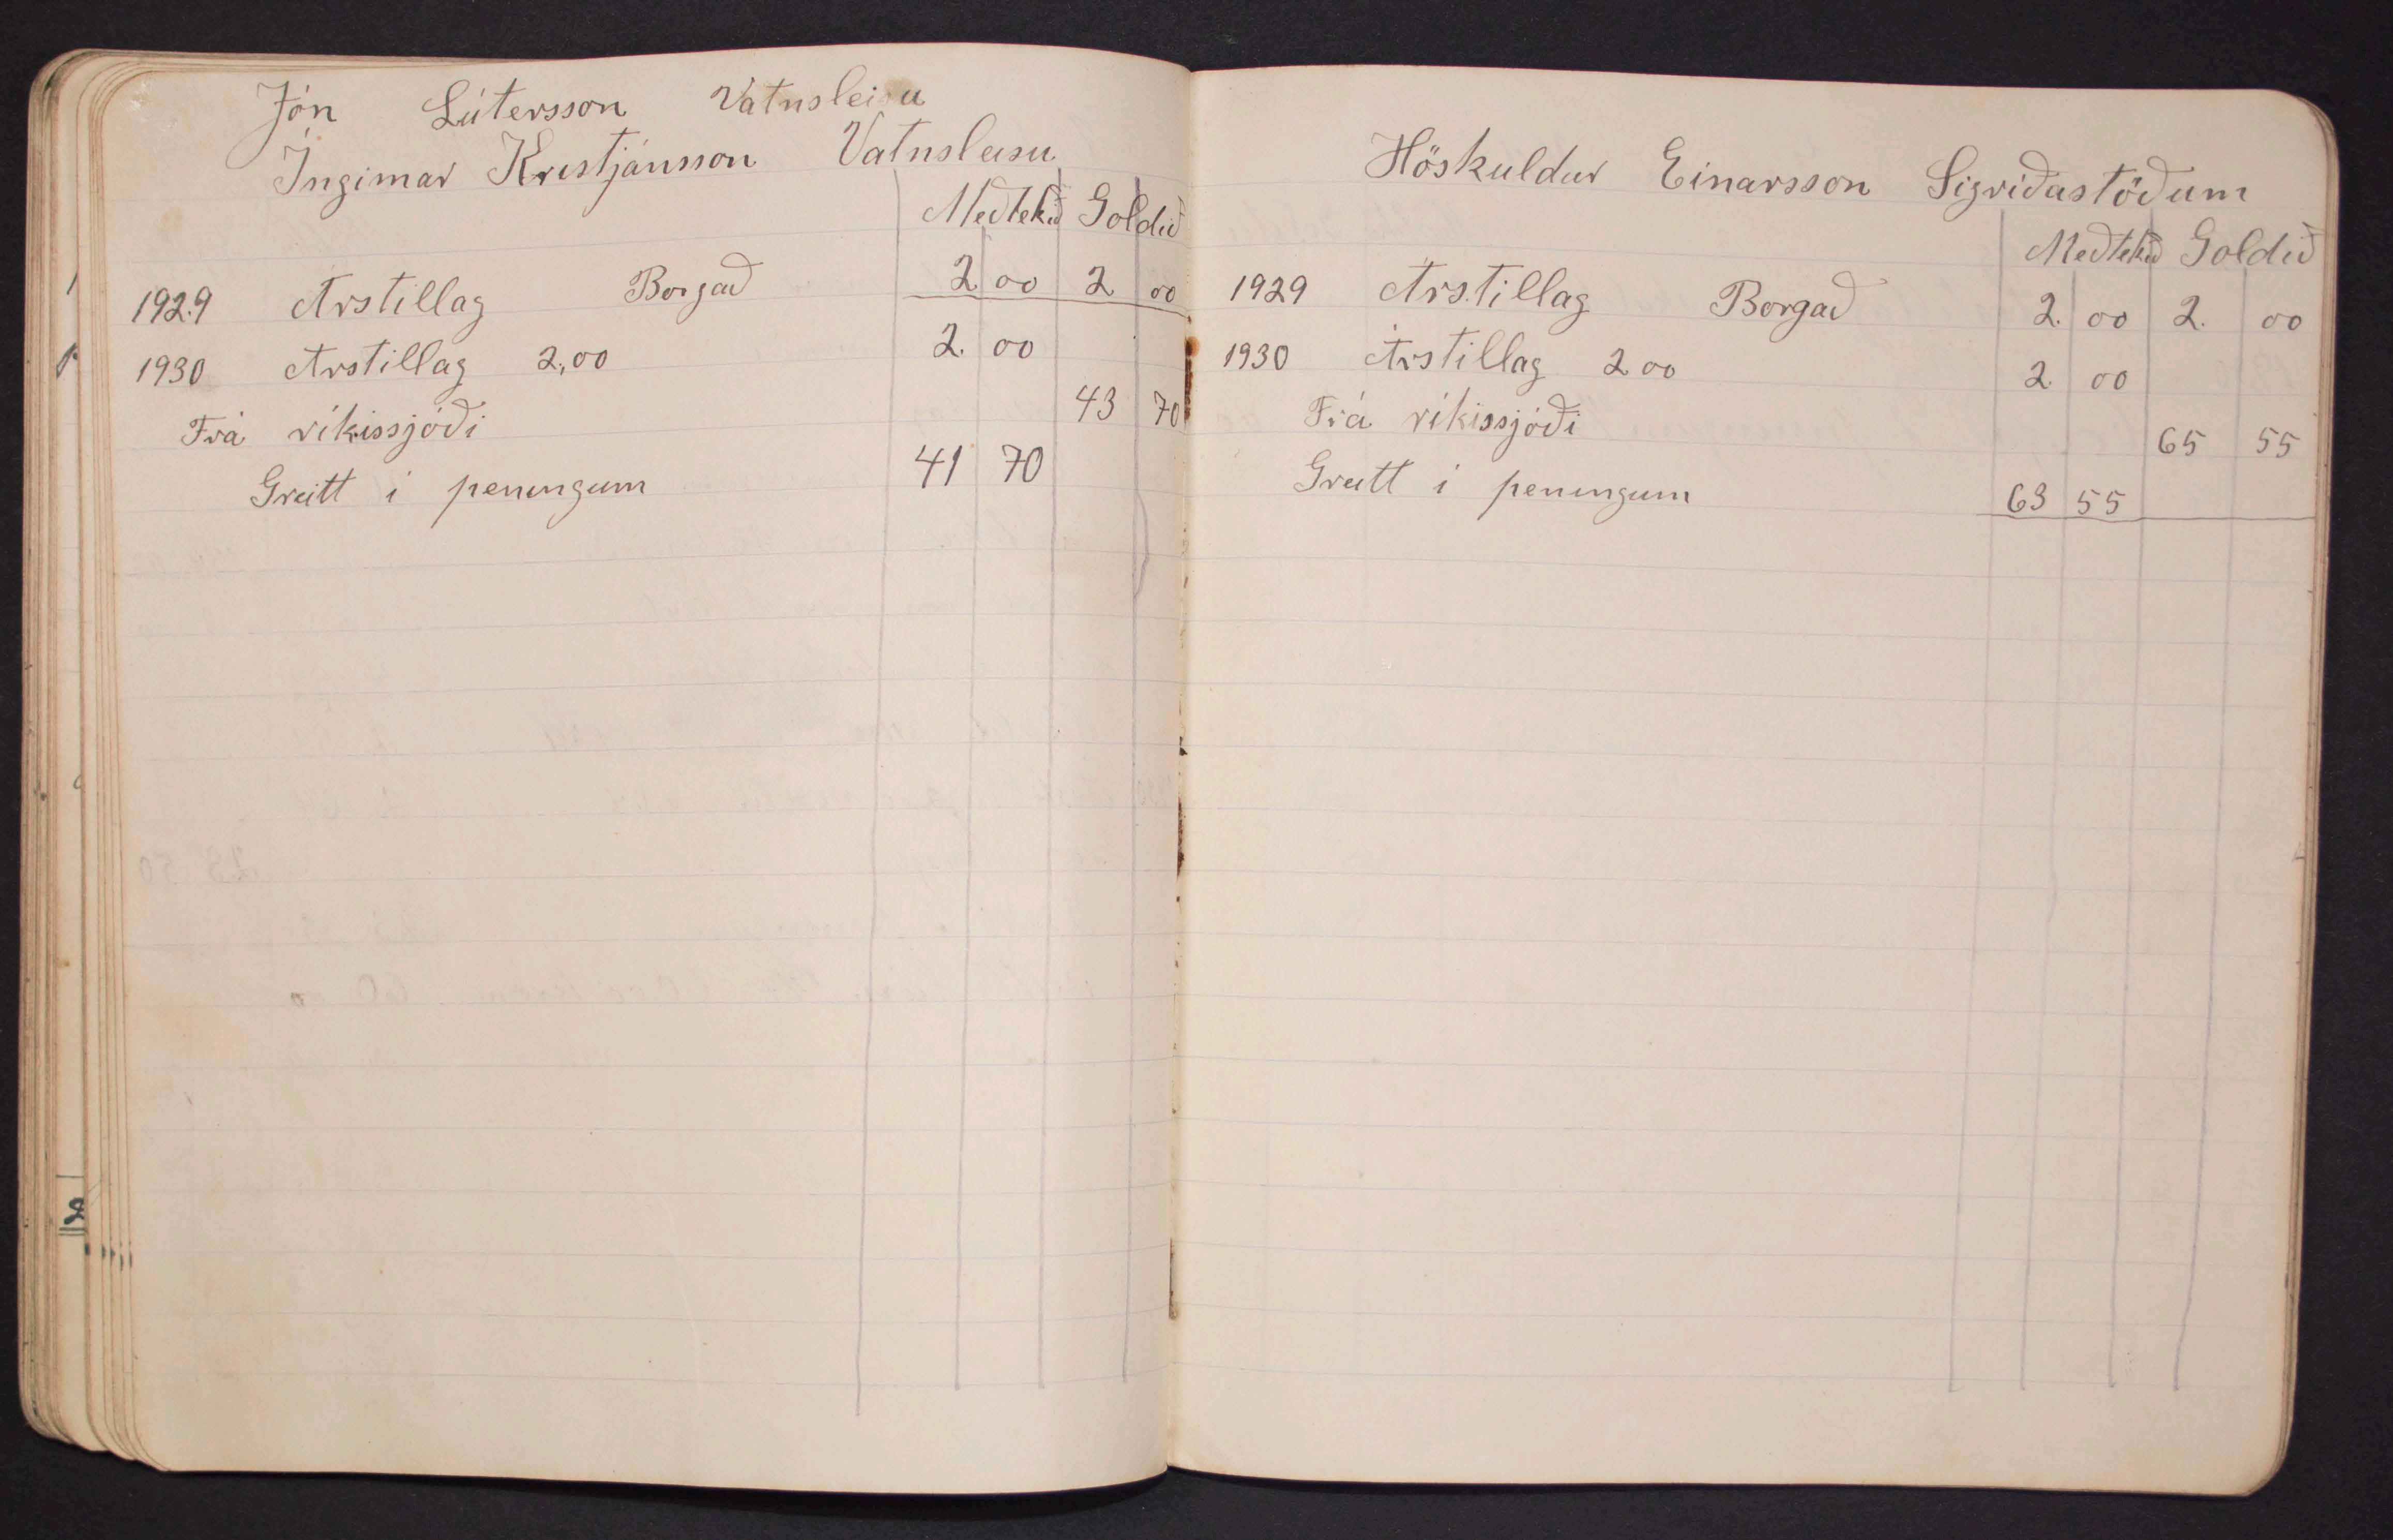 Jón Lútersson Vatnsleisu
Ingimar Kristjánsson Vatnsleisu
Meðtekið Goldið
1929 Árstillag Borgað 2 00 2 00
1930 Árstillag 2,00 2. 00
Frá ríkissjóði 43 70
Greitt í peningum 41 70
Höskuldur Einarsson Sigríðastöðum
Meðtekið Goldið
1929 Árstillag Borgað 2. 00 2. 00
1930 Árstillag 2 00 2. 00
Frá ríkissjóði 65 55
Greitt í peningum 63 55